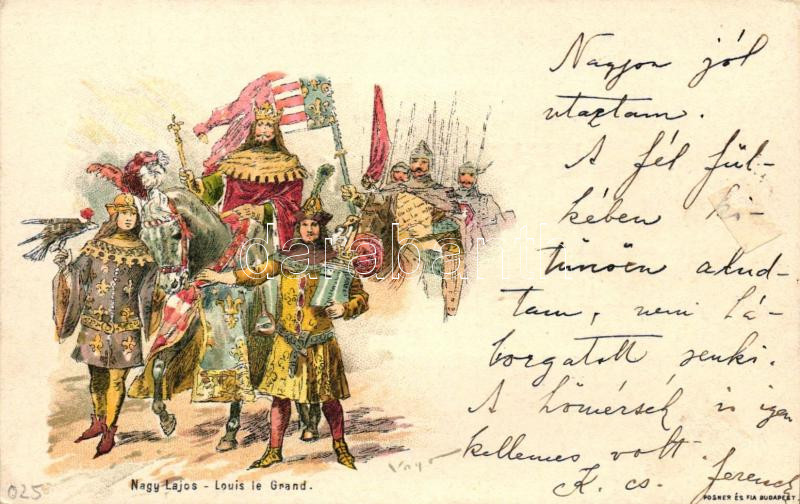 Nagyon jól
utaztam.
A fél fül-
kében ki-
tünöen alud-
tam, nem há-
borgatott senki.
A hömérsék is igen
kellemes volt.
K. cs. Ferencz
Nagy Lajos - Louis le Grand.
025
POSNER ÉS FIA BUDAPEST
darabanth